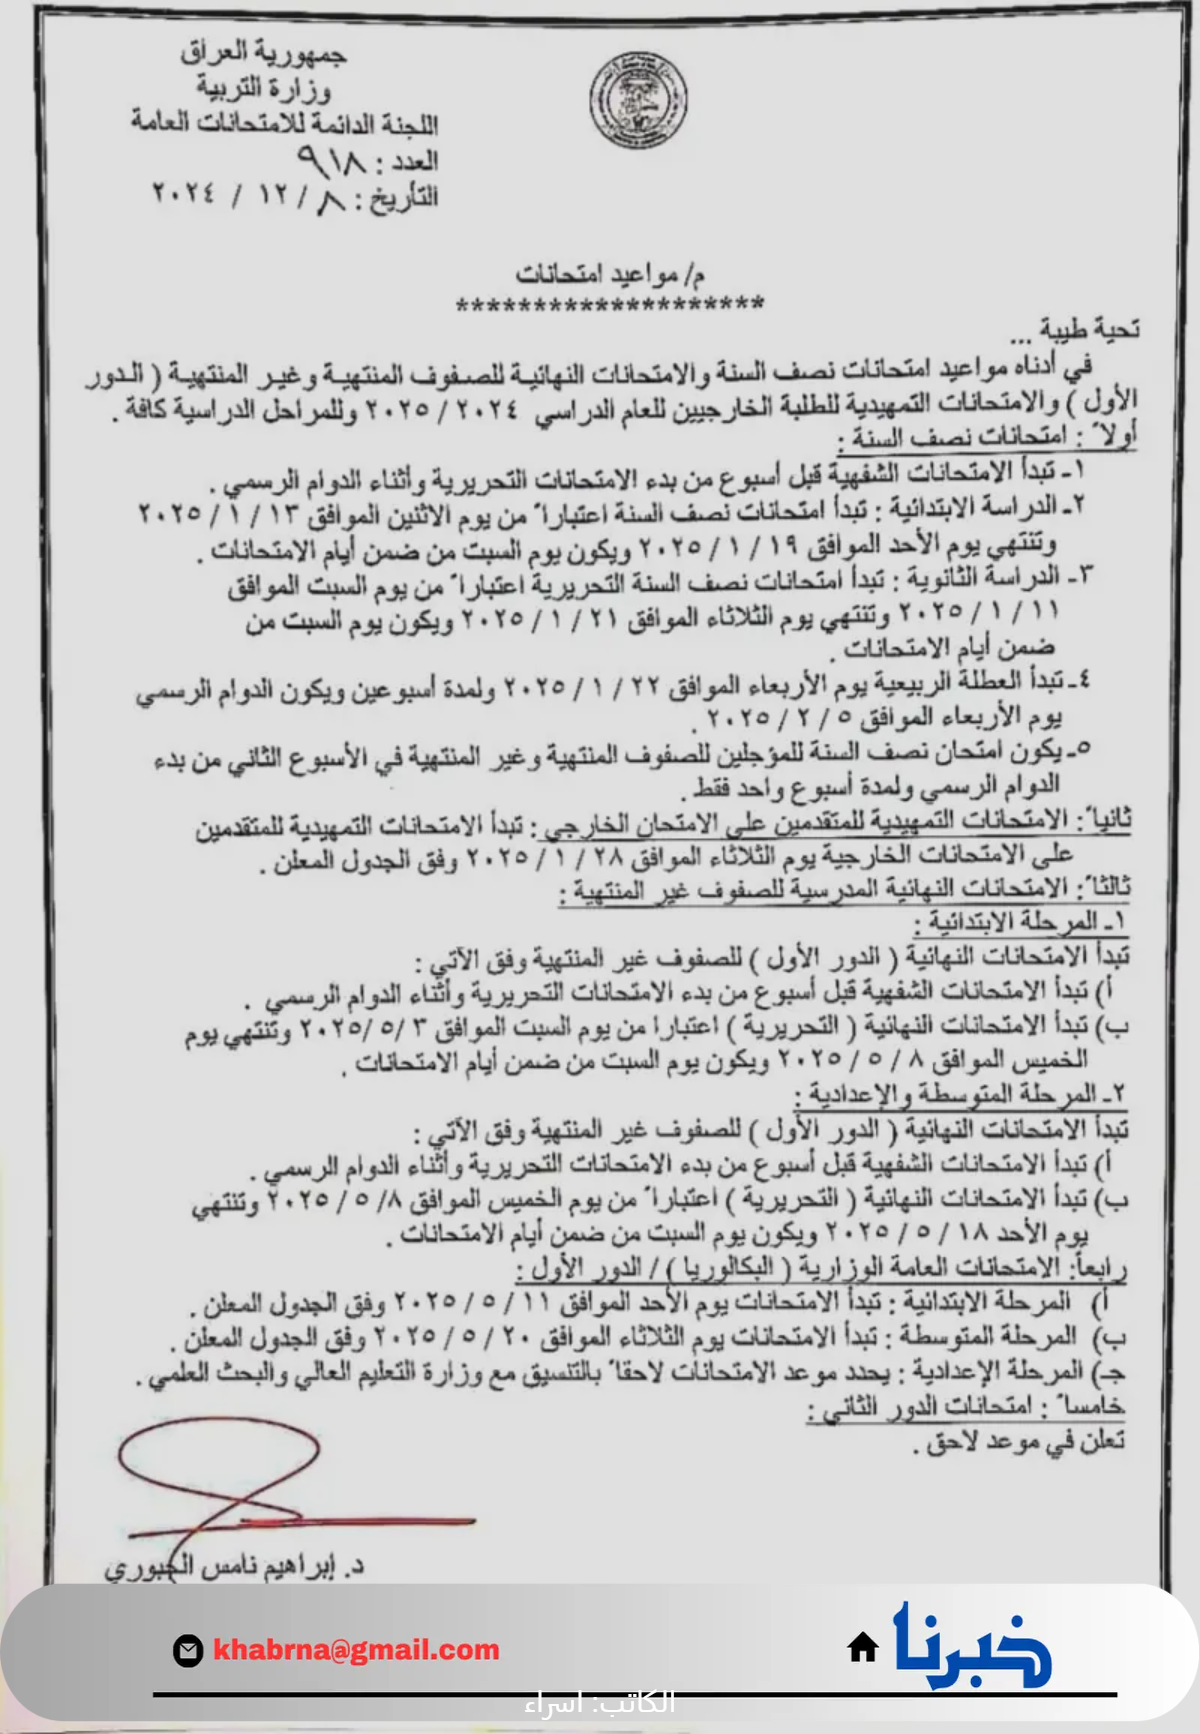 جمهورية العراق
وزارة التربية
اللجنة الدائمة للامتحانات العامة
العدد : ٩١٨
التأريخ : ٨ / ١٢ / ٢٠٢٤
م/ مواعيد امتحانات
********************
تحية طيبة ...
في أدناه مواعيد امتحانات نصف السنة والامتحانات النهائية للصفوف المنتهية وغير المنتهية ( الدور
الأول ) والامتحانات التمهيدية للطلبة الخارجيين للعام الدراسي ٢٠٢٤ / ٢٠٢٥ وللمراحل الدراسية كافة .
أولاً : امتحانات نصف السنة :
١ـ تبدأ الامتحانات الشفهية قبل أسبوع من بدء الامتحانات التحريرية وأثناء الدوام الرسمي .
٢ـ الدراسة الابتدائية : تبدأ امتحانات نصف السنة اعتباراً من يوم الاثنين الموافق ١٣ / ١ / ٢٠٢٥
وتنتهي يوم الأحد الموافق ١٩ / ١ / ٢٠٢٥ ويكون يوم السبت من ضمن أيام الامتحانات .
٣ـ الدراسة الثانوية : تبدأ امتحانات نصف السنة التحريرية اعتباراً من يوم السبت الموافق
١١ / ١ / ٢٠٢٥ وتنتهي يوم الثلاثاء الموافق ٢١ / ١ / ٢٠٢٥ ويكون يوم السبت من
ضمن أيام الامتحانات .
٤ـ تبدأ العطلة الربيعية يوم الأربعاء الموافق ٢٢ / ١ / ٢٠٢٥ ولمدة أسبوعين ويكون الدوام الرسمي
يوم الأربعاء الموافق ٥ / ٢ / ٢٠٢٥ .
٥ـ يكون امتحان نصف السنة للمؤجلين للصفوف المنتهية وغير المنتهية في الأسبوع الثاني من بدء
الدوام الرسمي ولمدة أسبوع واحد فقط .
ثانياً: الامتحانات التمهيدية للمتقدمين على الامتحان الخارجي : تبدأ الامتحانات التمهيدية للمتقدمين
على الامتحانات الخارجية يوم الثلاثاء الموافق ٢٨ / ١ / ٢٠٢٥ وفق الجدول المعلن .
ثالثاً: الامتحانات النهائية المدرسية للصفوف غير المنتهية :
١ـ المرحلة الابتدائية :
تبدأ الامتحانات النهائية ( الدور الأول ) للصفوف غير المنتهية وفق الآتي :
أ) تبدأ الامتحانات الشفهية قبل أسبوع من بدء الامتحانات التحريرية وأثناء الدوام الرسمي .
ب) تبدأ الامتحانات النهائية ( التحريرية ) اعتبارا من يوم السبت الموافق ٣ /٥ /٢٠٢٥ وتنتهي يوم
الخميس الموافق ٨ / ٥ / ٢٠٢٥ ويكون يوم السبت من ضمن أيام الامتحانات .
٢ـ المرحلة المتوسطة والإعدادية :
تبدأ الامتحانات النهائية ( الدور الأول ) للصفوف غير المنتهية وفق الآتي :
أ) تبدأ الامتحانات الشفهية قبل أسبوع من بدء الامتحانات التحريرية وأثناء الدوام الرسمي .
ب) تبدأ الامتحانات النهائية ( التحريرية ) اعتباراً من يوم الخميس الموافق ٨/ ٥ / ٢٠٢٥ وتنتهي
يوم الأحد ١٨ / ٥ / ٢٠٢٥ ويكون يوم السبت من ضمن أيام الامتحانات .
رابعاً: الامتحانات العامة الوزارية ( البكالوريا ) / الدور الأول :
أ) المرحلة الابتدائية : تبدأ الامتحانات يوم الأحد الموافق ١١ / ٥ / ٢٠٢٥ وفق الجدول المعلن .
ب) المرحلة المتوسطة : تبدأ الامتحانات يوم الثلاثاء الموافق ٢٠ / ٥ / ٢٠٢٥ وفق الجدول المعلن .
جـ) المرحلة الإعدادية : يحدد موعد الامتحانات لاحقاً بالتنسيق مع وزارة التعليم العالي والبحث العلمي .
خامساً : امتحانات الدور الثاني :
تعلن في موعد لاحق .
د. إبراهيم نامس الجبوري
خبرنا
khabrna@gmail.com
الكاتب: اسراء